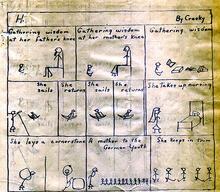 H.
By Crocky
Gathering wisdom
at her father's knee
Gathering wisdom
at her mother's knee
Gathering wisdom
She
sails
She
returns
She
sails
She
returns
She takes up nursing
She lays a cornerstone
A mother to the
German Youth
She keeps in trim